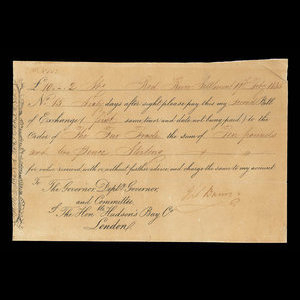 £10..2 Stg Red River Settlement 19th
No 13. Sixty days after sight please pay this my Second Bill
of Exchange (first same tenor and date not being paid) to the
Order of The Fur Trade the sum of Ten pounds
and two pence Sterling
for value received with or without further advice and charge the same to my account
To
The Governor Depty Governor,
and Committee
of The Honble Hudson's Bay Co
London